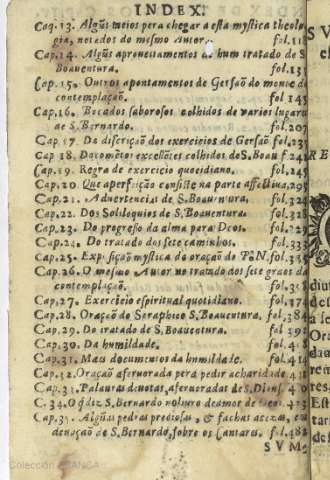 INDEX.
Cap. 13. Algũs meios pera chegar a esta mystica theolo-
gia, notados do mesmo Autor. fol.118
Cap.14. Algũs aproueitamentos de hum tratado de S.
Boauentura. fol.131
Cap.15. Outros apontamentos de Gersaõ do monte de
contemplaçaõ. fol 145
Cap.16. Bocados saborosos colhidos de varios lugares
de S. Bernardo. fol.207
Cap. 17. Da discriçaõ dos exercicios de Gersaõ fol.235
Cap 18. Documẽtos excellẽtes colhidos de S. Boau f 241
Cap.19. Regra de exercicio quotidiano. fol.245
Cap.20 Que aperfeiçaõ consiste na parte affectiua.295
Cap.21. Aduertencias de S. Boauentura. fol.324
Cap.22. Dos Soliloquios de S. Boauentura. fol.328
Cap.23. Do progresso da alma para Deos. fol.329
Cap.24. Do tratado dos sete caminhos. fol.333
Cap.25. Exposiçaõ mystica da oraçaõ do P. N. fol.345
Cap.26. O mesmo Autor no tratado dos sete graos da
contemplaçaõ. fol.358
Cap.27. Exercicio espiritual quotidiano. fol.374
Cap.28. Oraçaõ do Seraphico S. Boauentura. fol.384
Cap.29. Do tratado de S. Boauentura. fol
Cap.30. Da humildade. fol.
Cap.31. Mais documentos da humildade. fol.414
Cap.32. Oraçaõ aferuorada pera pedir a charidade
Cap.33. Palauras deuotas, aferuoradas de S. Dioni.
C.34. O q̃ diz S. Bernardo no liuro do amor de Deos.
Cap.35. Algũas pedras preciosas, & fachas acezas,
deuaçaõ de S. Bernardo, sobre os Cantares. fol.482
SVM
Colección